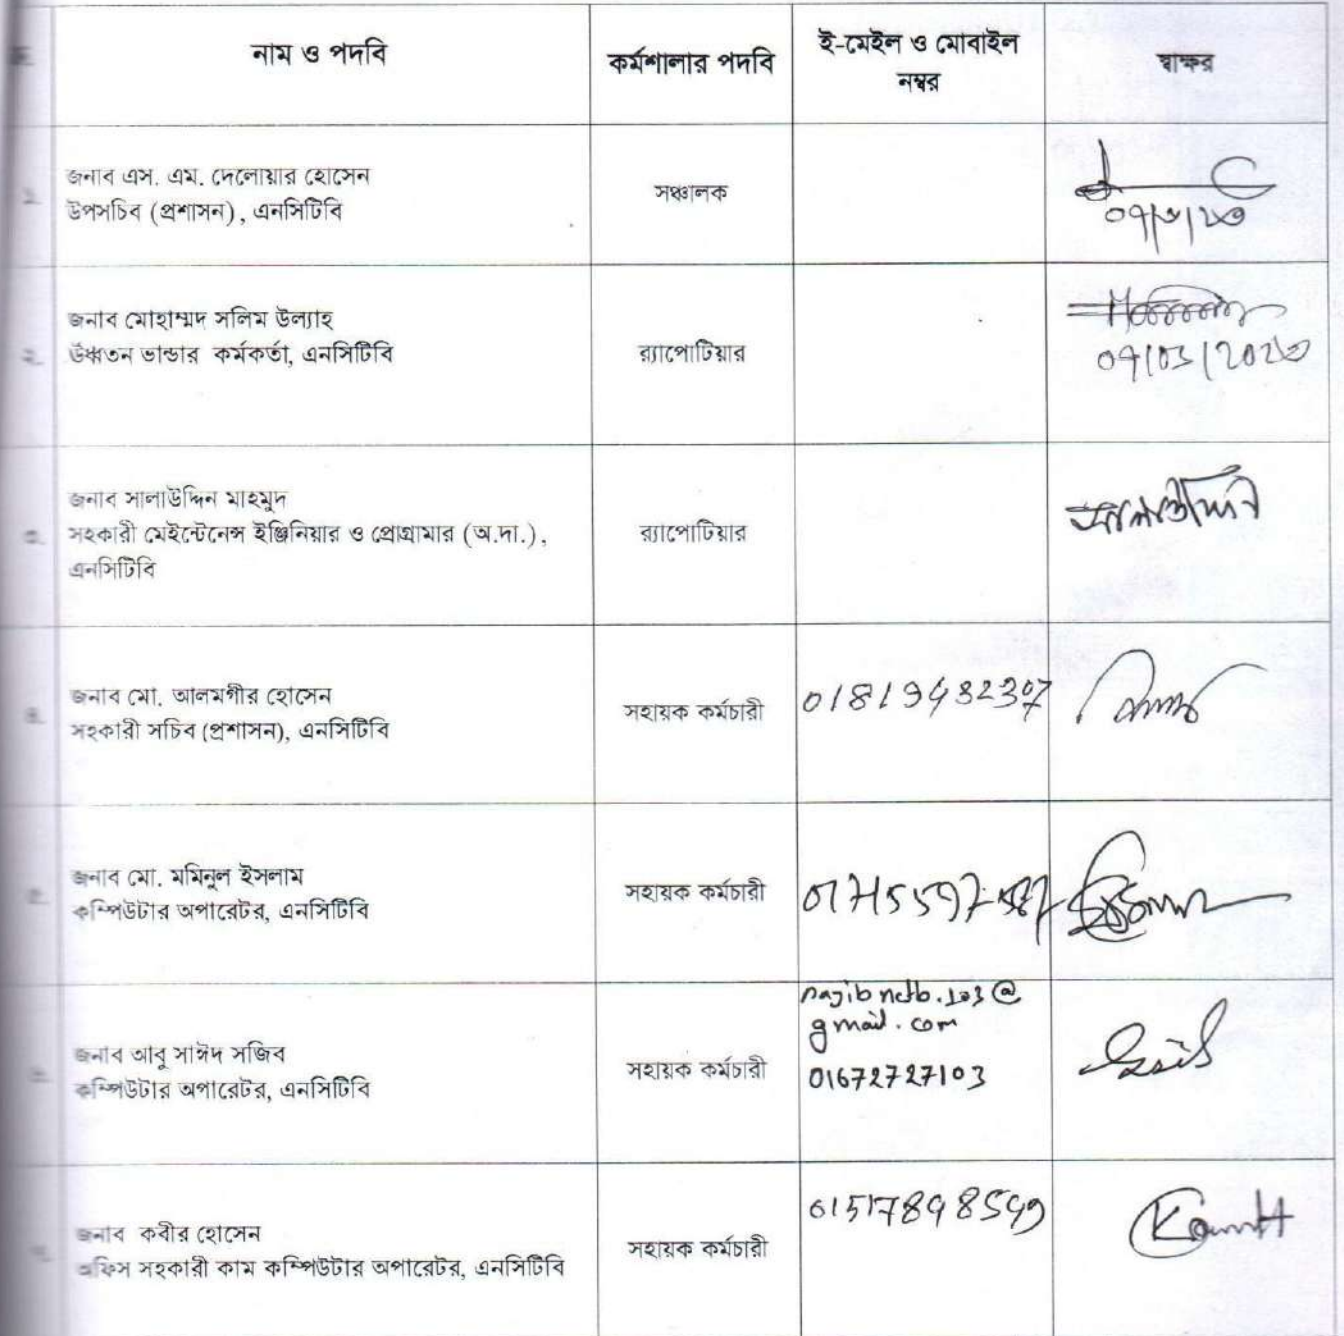 নাম ও পদবি
কর্মশালার পদবি
ই-মেইল ও মোবাইল
নম্বর
স্বাক্ষর
জনাব এস. এম. দেলোয়ার হোসেন
উপসচিব (প্রশাসন), এনসিটিবি
সঞ্চালক
০৭/৩/২৩
জনাব মোহাম্মদ সলিম উল্যাহ
উর্ধ্বতন ভান্ডার কর্মকর্তা, এনসিটিবি
র‍্যাপোটিয়ার
জনাব সালাউদ্দিন মাহমুদ
সহকারী মেইন্টেনেন্স ইঞ্জিনিয়ার ও প্রোগ্রামার (অ.দা.),
এনসিটিবি
র‍্যাপোটিয়ার
জনাব মো. আলমগীর হোসেন
সহকারী সচিব (প্রশাসন), এনসিটিবি
সহায়ক কর্মচারী
জনাব মো. মমিনুল ইসলাম
কম্পিউটার অপারেটর, এনসিটিবি
সহায়ক কর্মচারী
জনাব আবু সাঈদ সজিব
কম্পিউটার অপারেটর, এনসিটিবি
সহায়ক কর্মচারী
gmail.com
01672727103
জনাব কবীর হোসেন
অফিস সহকারী কাম কম্পিউটার অপারেটর, এনসিটিবি
সহায়ক কর্মচারী